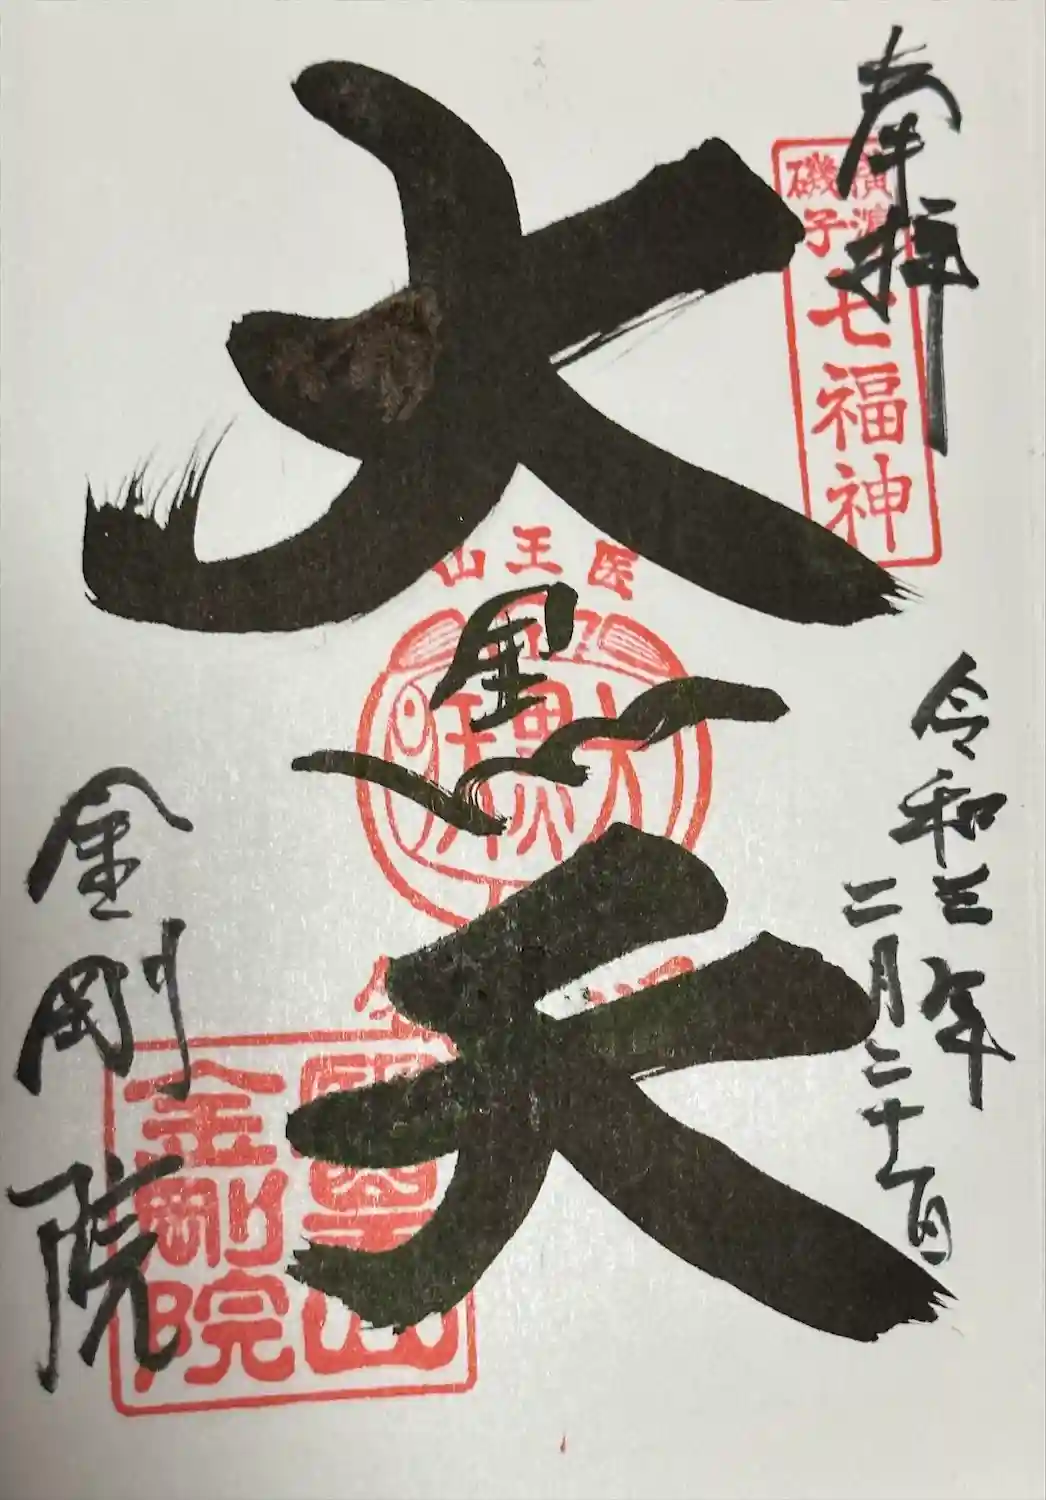 奉拝
横濱
磯子
七福神
令和三年
二月二十一日
大黒天
医王山
大黒天
金剛院
醫王山
金剛院